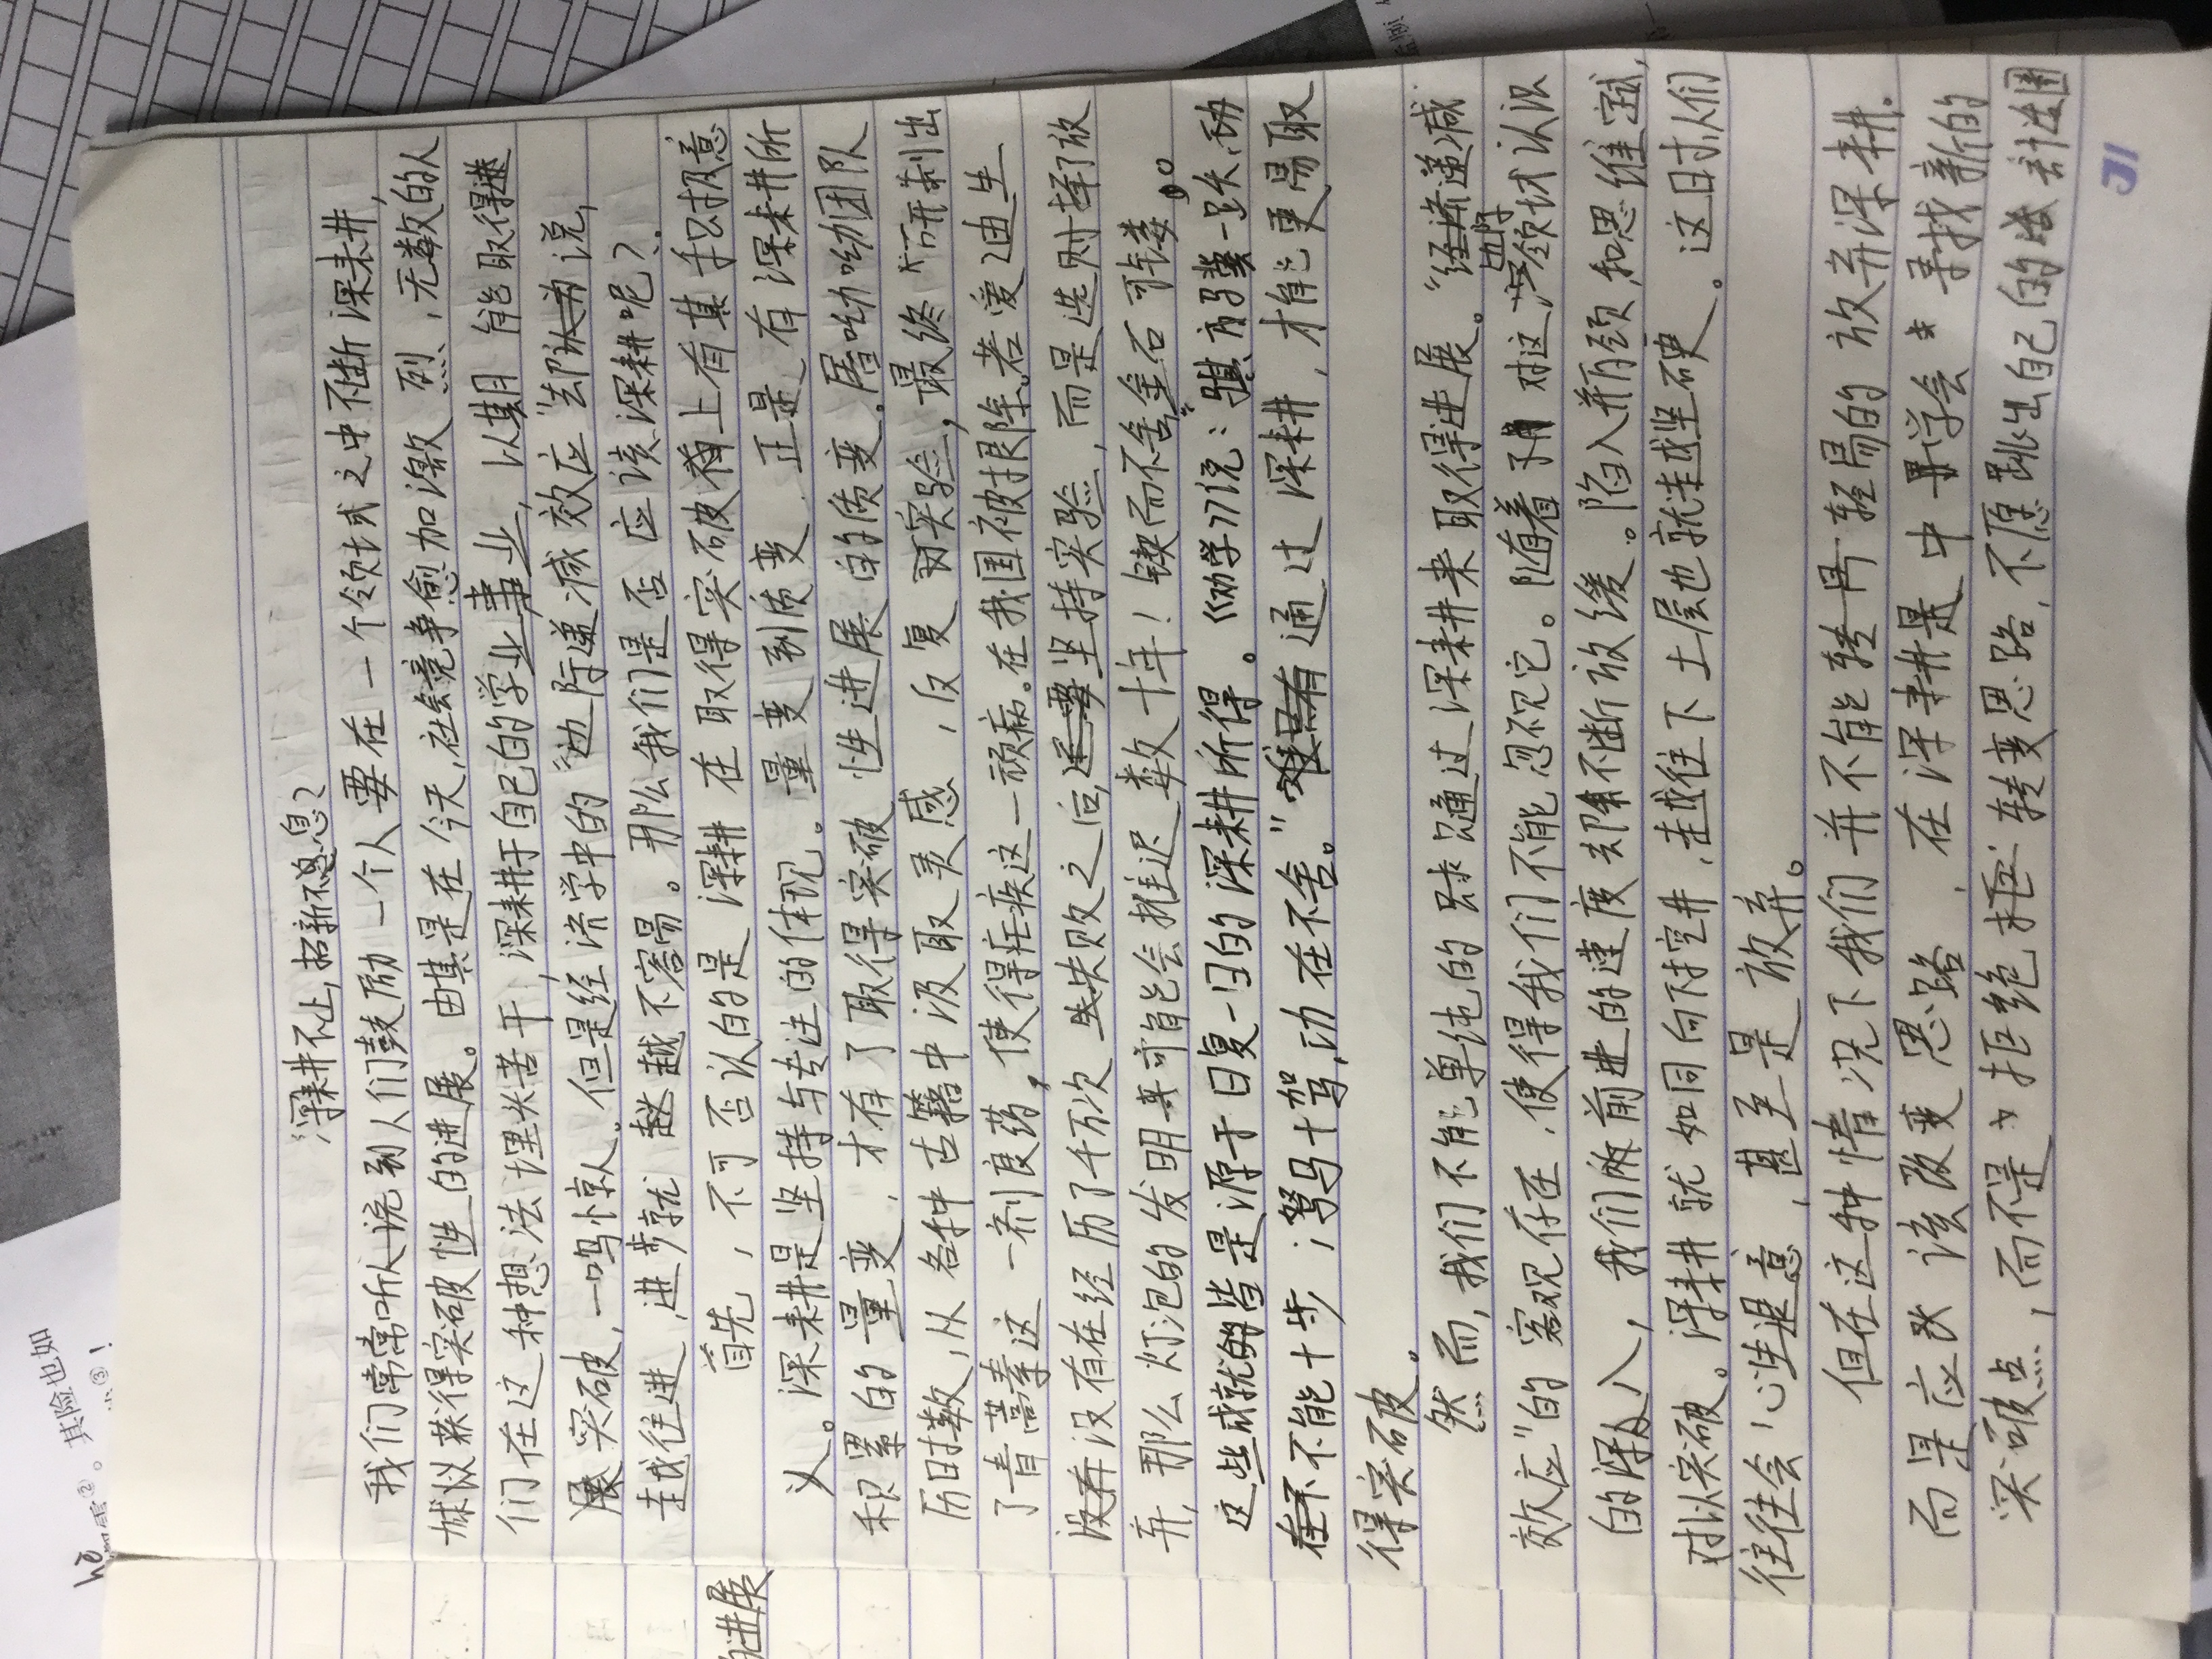 深耕不止,拓新不息?
我们常常听人说到人们鼓励一个人要在一个领域之中不断深耕,
以获得突破性的进展。由其是在今天,社会竞争愈加激烈,无数的人
们在这种想法埋头苦干,深耕于自己的学业事业,以期能取得进
展突破,一鸣惊人。但是经济学中的“边际递减效应”却认为说,
越往进,进步就越不容易。那么我们是否应该深耕呢?
首先,不可否认的是深耕在取得突破上有其积极意
义。深耕是坚持与专注的体现。量变到质变正是有深耕所
积累的量变,才有了取得突破性进展的质变。屠呦呦团队
历时数,从各种古籍中汲取灵感,反复实验,最终研制出
了青蒿素这一剂良药,使得疟疾这一顽病。在我国被拔除。若爱迪生
没有在经历了千万次失败之后,坚持实验,而是选则择了放
弃,那么灯泡的发明可能会推迟数十年!“锲而不舍,金石可镂。”
这些成就皆是源于日复一日的深耕所得。《劝学》说:“骐骥一跃,
不能十步;驽马十驾,功在不舍。”唯有通过深耕,才能更易取
得突破。
然而,我们不能单纯的只通过深耕来取得进展。“经济递减
边际
效应”的客观存在,使得我们不能忽视它。随着对这领域认识
的深入,我们前进的速度却不断放缓。陷入瓶颈和思维定式,
难以突破。深耕就如同向下挖井,越往下土层也就越坚硬。这时人们
往往会心生退意,甚至是放弃。
但在这种情况下我们并不能轻易的放弃深耕。
而是应该改变思路,在深耕中学会寻找新的
突破点,而不是拒绝转变思路,不愿跳出自己的舒适圈
的进展
其险也如
31